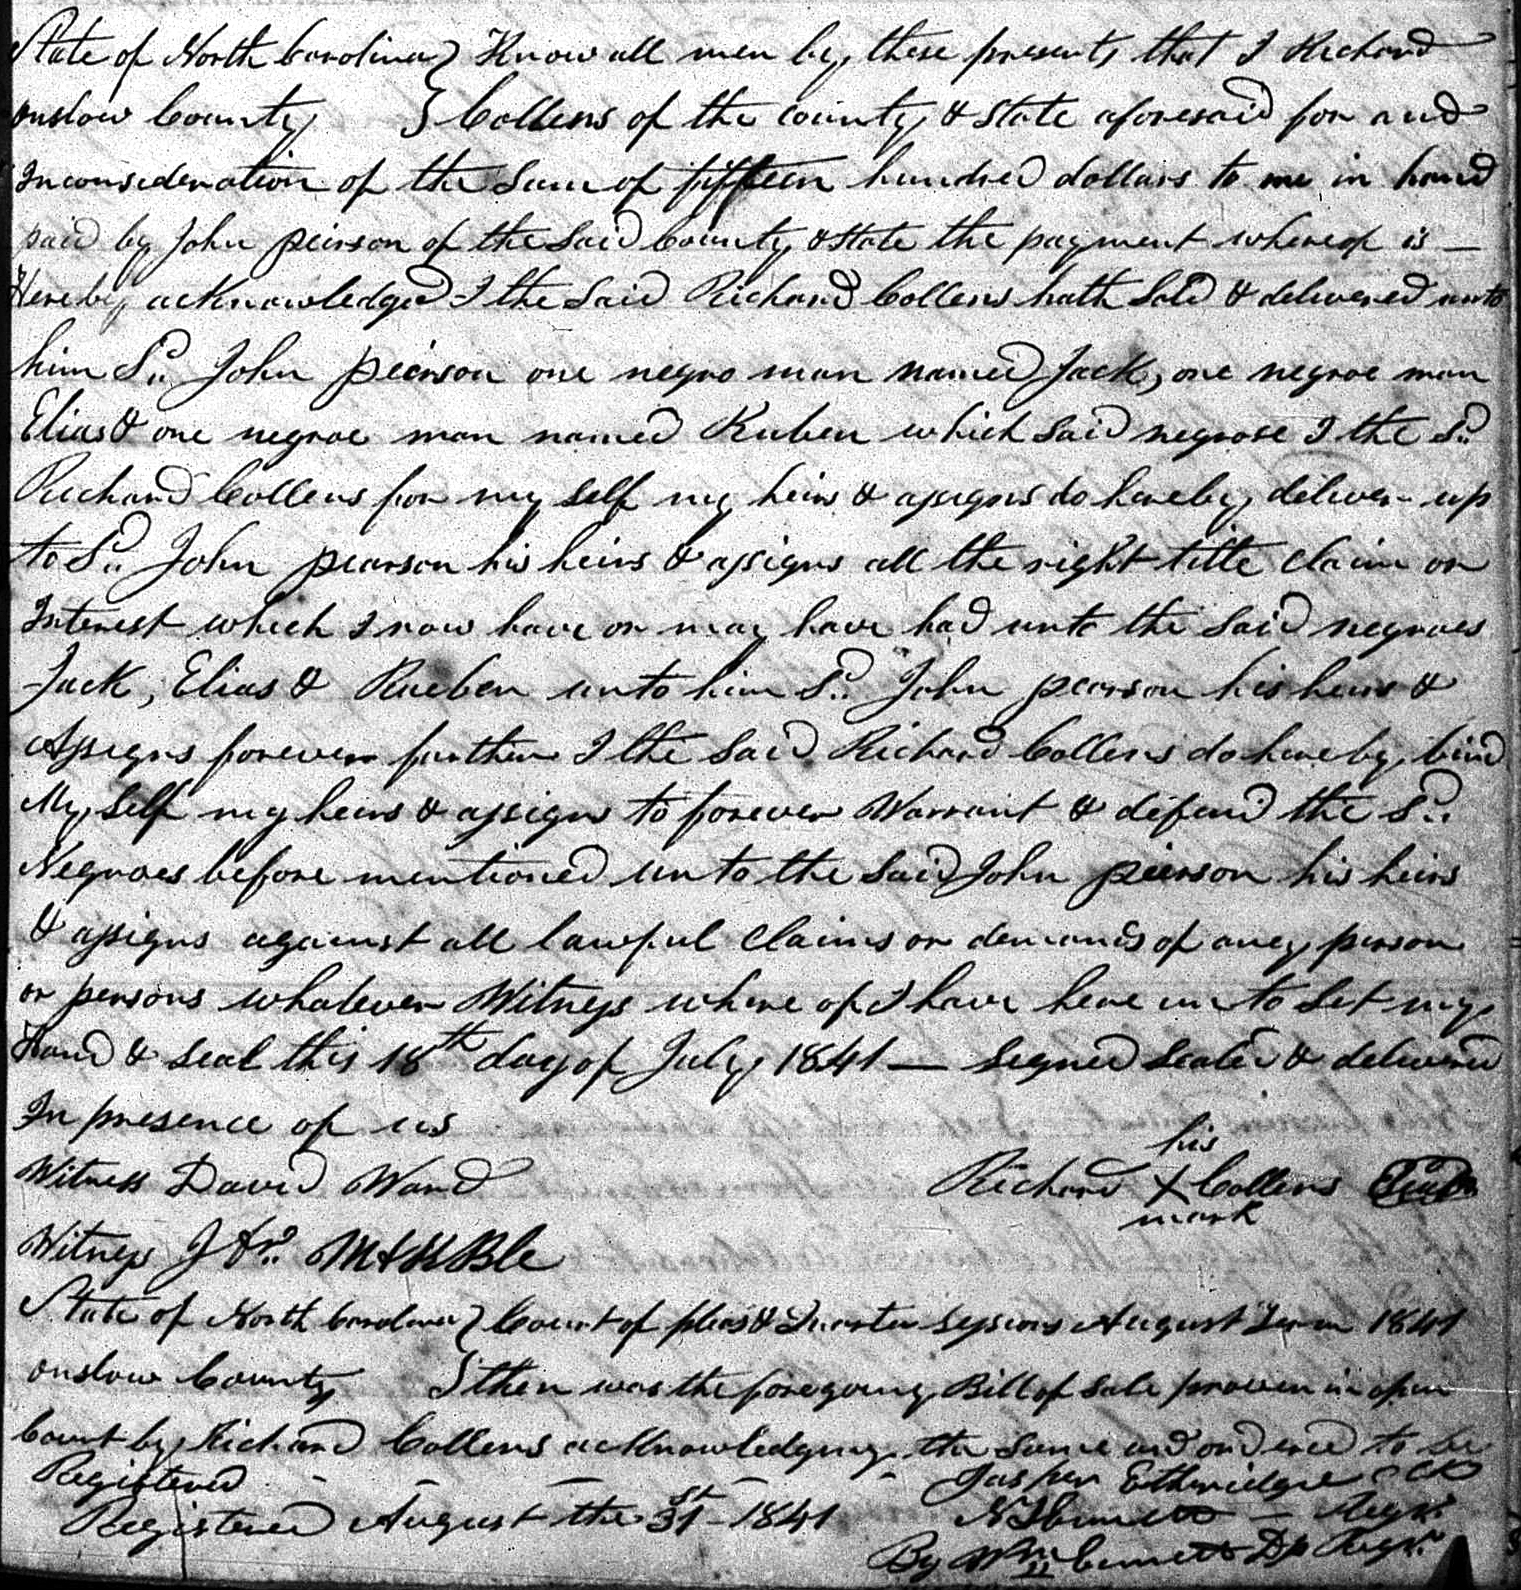 State of North Carolina } Know all men by these presents that I Richard
onslow County } Collens of the county & State aforesaid for and
Inconsideration of the Sum of fiffteen hundred dollars to me in hand
paid by John peirson of the Said County & State the payment whereof is —
Hereby acknowledged I the Said Richard Collens hath Sold & delivered unto
him Sd. John peirson one negro man named Jack, one negroe man
Elias & one negroe man named Ruben which Said negrose I the Sd.
Richard Collens for my self my heirs & assigns do hereby deliver up
to Sd. John pearson his heirs & assigns all the right title claim or
Interest which I now have or may have had unto the Said negroes
Jack, Elias & Rueben unto him Sd. John pearson his heirs &
Assigns forever further I the Said Richard Collens do hereby bind
My Self my heirs & assigns to forever Warrant & defend the Sd.
Negroes before mentioned unto the Said John peirson his heirs
& assigns against all lawful claims or demands of any person
or persons whatever Witness where of I have here unto Set my
Hand & Seal this 18th day of July 1841 — Signed Sealed & delivered
In presence of us
his
Witness David Ward Richard X Collens Seal
mark
Witness
State of North Carolina } Court of pleas & Quarter Sessions August Term 1841
onslow County } then was the foregoing Bill of Sale proven in open
Court by Richard Collens acknowledging the Same and ordered to be
Registered - - - - Jasper Etheridge Clk
Registered August the 31st - 1841 — Regr.
By Wm. Dp Regr.